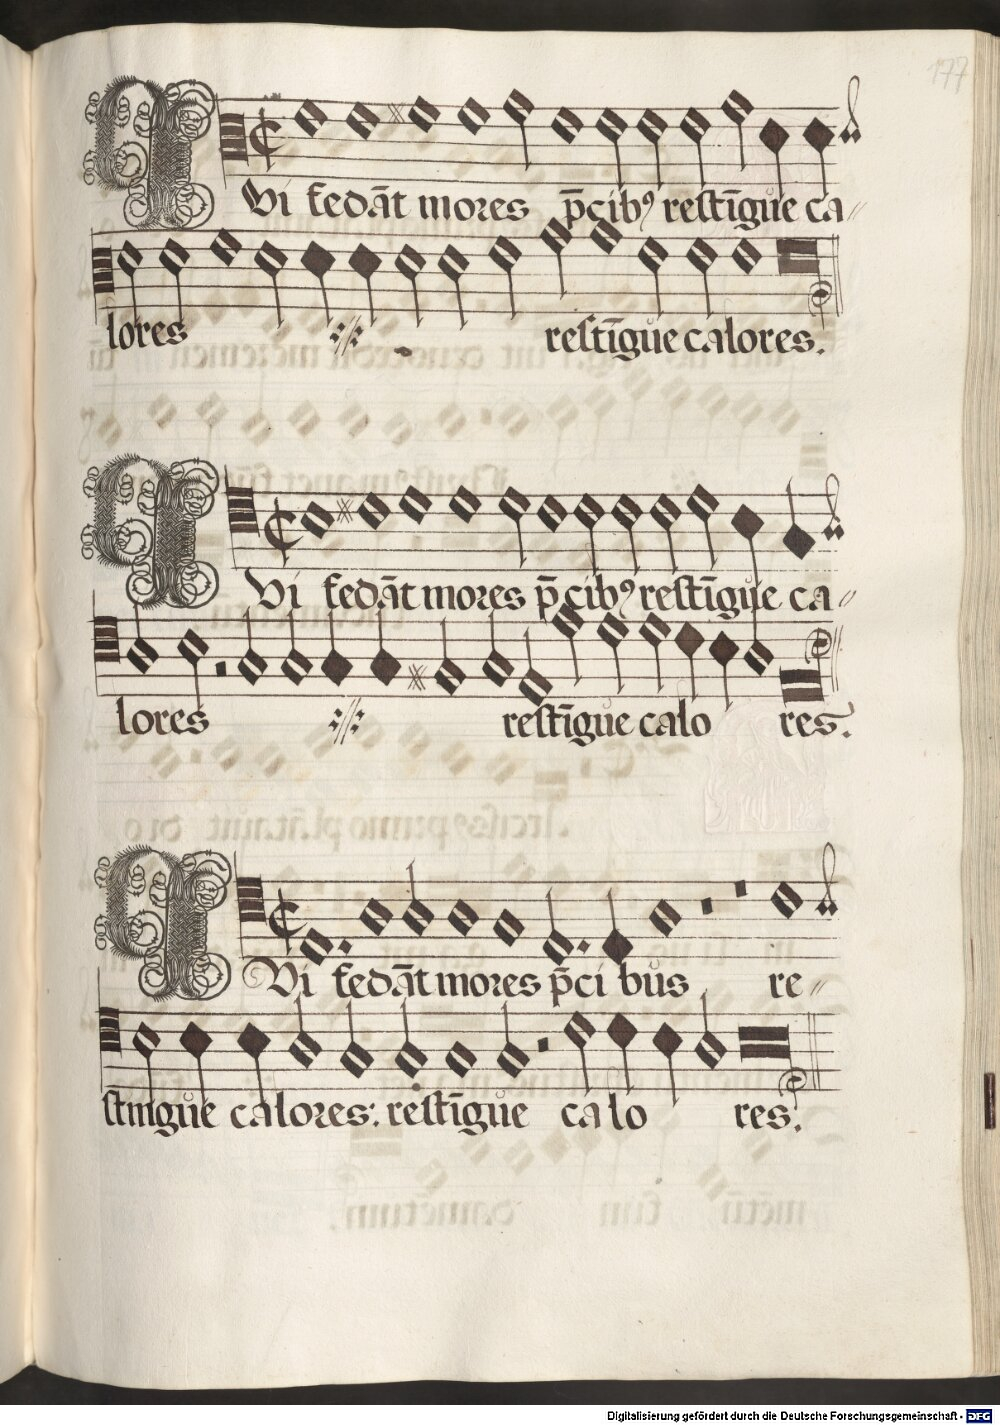 177
Qui fedāt mores p̄cibꝰ restīgue ca〃
lores ://: restīgue calores.
Qui fedāt mores p̄cibꝰ restīgue ca〃
lores ://: restīgue calo res.
Qui fedāt mores p̄ci bus re〃
stingue calores: restīgue calo res.
Digitalisierung gefördert durch die Deutsche Forschungsgemeinschaft - DFG